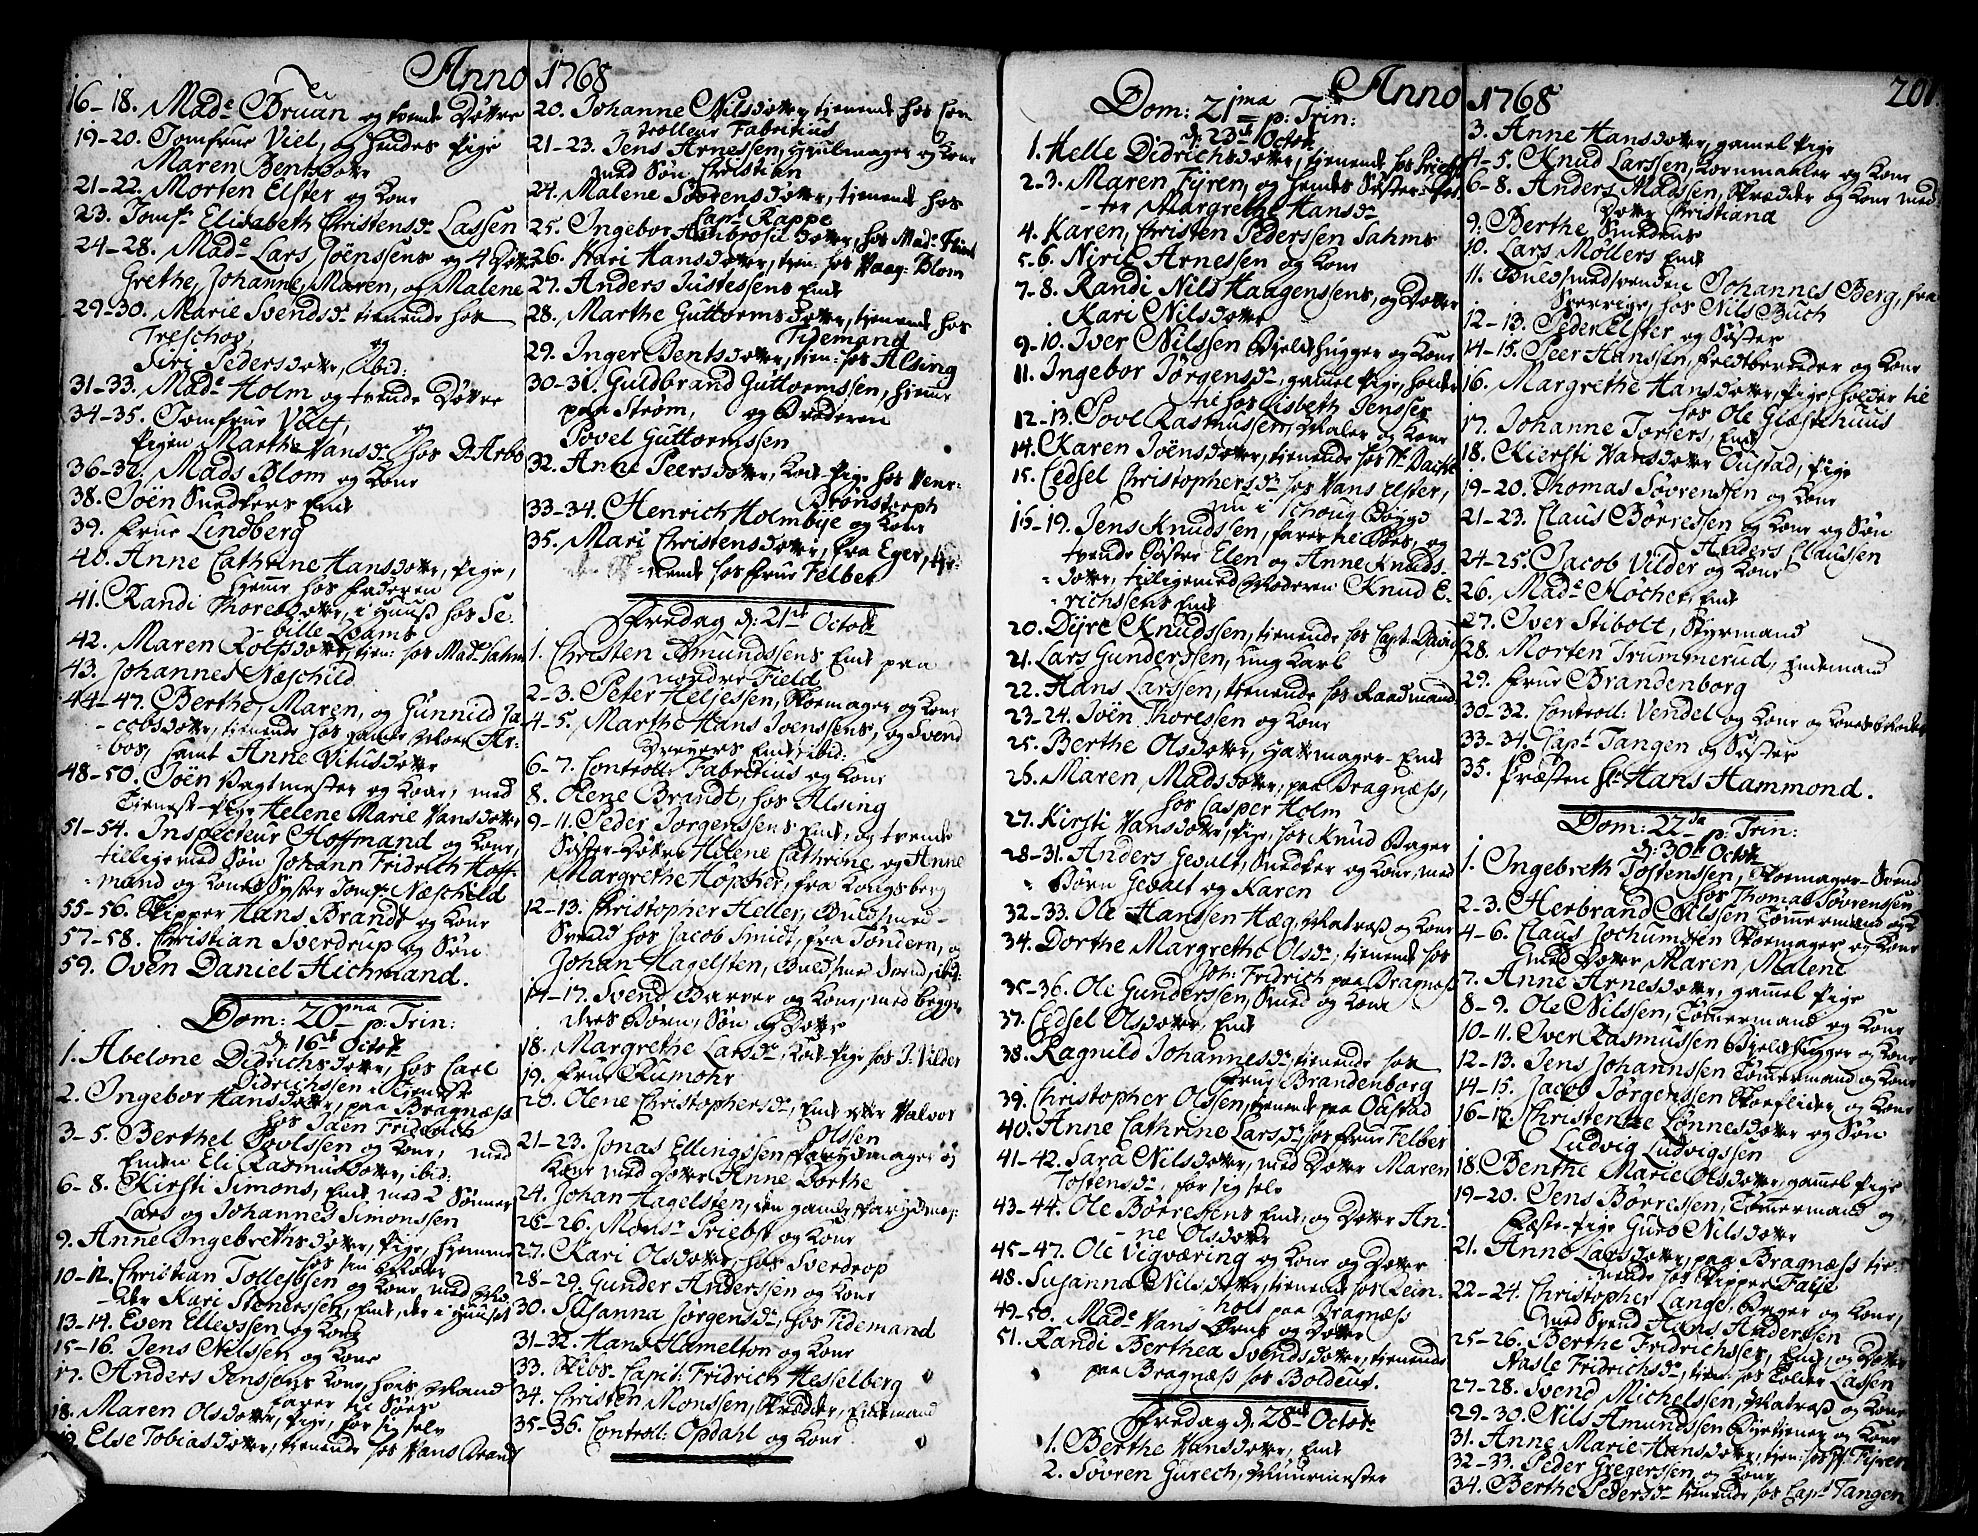 Anno 1768
16-18. Mad. Bruun og tvende Døttre
19-20. Jomfrue Viel, og hendes Pige
Maren Bentsdotter
21-22. Morten Elster og Kone
23. Jomfr Elisabeth Christensdr Lassen
24-28. Mad. Lars Jöenssens og 4 Døttre
Grethe, Johanne, Maren, og Malene
29-30. Marie Svendsdr tienende hos
Treschov, og
Siri Pedersdotter, ibid:
31-33. Mad. Holm og tvende Døttre
34-35. Jomfrue Vült, og
Pigen Marthe Hansdr hos Dr Arbo
36-37. Mads Blom og Kone
38. Jöen Snedkers Enke
39. Frue Lindberg
40. Anne Cathrine Hansdotter, Pige,
hjemme hos Faderen
41. Randi Thoresdotter, i Huuss hos Se-
bille Adams
42. Maren Rolfsdotter, tien: hos Mad. Sahm
43. Johannes Næschild
44-47. Berthe, Maren, og Gunnild Ja-
cobsdotter, tienende hos gamle Moer Ar-
bos, samt Anne Vitusdotter
48-50. Jöen Vagtmester og Kone, med
Tienest-Pige Helene Marie Hansdotter
51-54. Inspecteur Hoffmand og Kone,
tilligemed Søn Johann Fridrich Hoff-
mand og Kones Syster Jomfr Næschild
55-56. Skipper Hans Brandt og Kone
57-58. Christian Sverdrup og Søn
59. Oven Daniel Hichmand.
Dom: 20ma p: Trin:
d. 16de Octobr
1. Abelone Didrichsdotter, hos Carl
Didrichssen i Tieneste
2. Ingebor Hansdotter, paa Bragnæss
hos Jaen Fridrich
3-5. Berthel Povlssen og Kone, med
Enken Eli Rasmusdotter, ibid:
6-8. Kirsti Simons, Enke med 2 Sønner
Lars og Johannes Simonssen
9. Anne Ingebrethsdotter, Pige, hjemme
hos sin Moder
10-12. Christian Tollefssen og Kone, med Mo-
der Kari Stenerssen, Enke, der i Huuset
13-14. Even Ellevssen og Kone
15-16. Jens Nilssen og Kone
17. Anders Jenssens Kone, hvis Mand
farer til Søes
18. Maren Olsdotter, Pige, for sig selv
19. Else Tobiasdotter, tienende hos Hans Brandt
20. Johanne Nilsdotter, tienende hos Con
trolleur Fabritius
21-23. Jens Arnessen, Hiulmager og Kone
med Søn Christian
24. Malene Sørensdotter, tienende hos
Capt Rappe
25. Ingebor Ambrosii dotter, hos Mad. Flint
26. Kari Hansdotter, tien: hos Vaag: Blom
27. Anders Justessens Enke
28. Marthe Guttormsdotter, tienende hos
Tidemand
29. Inger Bentsdotter, tien: hos Alsing
30-31. Guldbrand Guttormssen, hjemme
paa Strøm, og Broderen
Povel Guttormssen
32. Anne Peersdotter, Kok-Pige hos Venr-
Brønstorph
33-34. Henrich Holmboe og Kone
35. Mari Christensdotter, fra Eger, tje-
nende hos Frue Felber
Fredag d: 21de Octobr
1. Christen Amundssens Enke paa
nordre Field
2-3. Peter Heljessen, Skomager, og Kone
4-5. Marthe Hans Joenssens, og Svend
Dreyers Enke, ibid:
6-7. Controlleur Fabritius og Kone
8. Olene Brandt, hos Alsing
9-11. Peder Jorgenssens Enke, og tvende
Søster-Døttre Helene Cathrine og Anne
Margrethe Höpcher, fra Kongsberg
12-13. Christopher Heller, Guldsmed-
Svend hos Jacob Smidt, fra Tøndern, og
Johan Hagelsten, Guldsmed Svend, ibid.
14-17. Svend Barver og Kone, med begge
deres Børn, Søn og Dotter
18. Margrethe Larsdr, Kok-Pige hos J: Vilder
19. Frue Rumohr
20. Olene Christophersdr, Enke efter Halvor
Olssen
21-23. Jonas Ellingssen Parykmager og
Kone med Dotter Anne Dorthe
24. Johan Hagelsten, den gamle Parykmag:
25-26. Monsr Priebst og Kone
27. Kari Olsdotter, hos Sverdrop
28-29. Gunder Anderssen og Kone
30. Susanna Jørgensdr, hos Tidemand
31-32. Hans Hamelton og Kone
33. Skibs-Capit: Fridrich Hesselberg
34. Christen Monssen, Skrædder, Enkemand
35-36. Controll: Opdahl og Kone
Anno 1768
201.
Dom: 21ma p: Trin:
d: 23de Octobr
1. Helle Didrichsdotter, tienende hos Priebst
2-3. Maren Fÿren, og hendes Søster-Dot-
ter Margrethe Hansdr
4. Karen, Christen Pederssen Sahms
5-6. Niric Arnessen og Kone
7-8. Randi Nils Haagenssens, og Dotter
Kari Nilsdotter
9-10. Iver Nilssen Bielkehugger og Kone
11. Ingebor Jørgensdr, gamel Pige, holder
til hos Lisbeth Jensses
12-13. Povl Rasmussen, Maler og Kone
14. Karen Jöensdotter, tienende hos Hr Bache
15. Cedsel Christophersdr hos Hans Elster,
16-19. Jens Knudssen, farer til Søes, og
tvende Søstre Elen og Anne Knuds-
dotter, tilligemed Moderen Knud E-
richssens Enke
20. Dÿre Knudssen, tienende hos Capt. David
21. Lars Gunderssen, ung Karl
22. Hans Larssen, tienende hos Raadmand
23-24. Jöen Thoressen og Kone
25. Berthe Olsdotter, Hattemager-Enke
26. Maren Madsdotter, paa Bragnæss,
hos Casper Holm
27. Kirsti Hansdotter, Pige, hos Knud Bager
28-31. Anders Gevalt, Snedker og Kone, med
Børn Gevalt og Karen
32-33. Ole Hanssen Hæg, Matross og Kone
34. Dorthe Margrethe Olsdr, tienende hos
Joh: Fridrich paa Bragnæss
35-36. Ole Gunderssen, Smed og Kone
37. Cedsel Olsdotter, Enke
38. Ragnild Johannesdr, tienende hos
Frue Brandenborg
39. Christopher Olssen, tienende paa Oustad
40. Anne Cathrine Larsdr hos Frue Felber
41-42. Sara Nilsdotter, med Dotter Maren
Tostensdr, for sig selv
43-44. Ole Børressens Enke, og Dotter An-
ne Olsdotter
45-47. Ole Vigværing og Kone og Dotter
48. Susanna Nilsdotter, tienende hos Lein-
holt paa Bragnæss
49-50. Mad. Hans Ørns og Dotter
51. Randi Berthea Svendsdotter, tienende
paa Bragnæss hos Boldens.
Fredag d. 28de Octobr
1. Berthe Hansdotter, Enke
2. Søvren Gurech, Muurmester
3. Anne Hansdotter, gamel Pige
4-5. Knud Larssen, Kornmakler og Kone
6-8. Anders Madssen, Skrædder og Kone med
Dotter Christiana
9. Berthe Smedens
10. Lars Møllers Enke
11. Guldsmedsvenden Johannes Berg, fra
Sverrige, hos Nils Buch
12-13. Peder Elster og Søster
14-15. Peer Hanssen, Feldbereder og Kone
16. Margrethe Hansdotter, Pige, holder til
hos Ole Giæstehuus
17. Johanne Torgers, Enke
18. Kiersti Hansdotter Oustad, Pige
19-20. Thomas Søvrenssen og Kone
21-23. Claus Børressen og Kone og Søn
Anders Claussen
24-25. Jacob Vilder og Kone
26. Mad. Høcher, Enke
27. Iver Stibolt, Styrmand
28. Morten Trummerud, Enkemand
29. Frue Brandenborg
30-32. Controll: Vendel og Kone og Kones Moder
33-34. Capt Tangen og Søster
35. Præsten Hr Hans Hammond.
Dom: 22da p: Trin:
d: 30te Octobr
1. Ingebreth Tostenssen, Skomager-Svend
hos Thomas Søvrenssen
2-3. Herbrand Nilssen Tømmermand og K.
4-6. Claus Jochumssen Skomager og Kone
med Dotter Maren Malene
7. Anne Arnesdotter, gammel Pige
8-9. Ole Nilssen, Tømermand og Kone
10-11. Iver Rasmussen Bielkehugger og Kone
12-13. Jens Johannssen Tømermand og Kone
14-15. Jacob Jørgenssen Skoeflider og Kone
16-17. Christentze Lønnesdotter og Søn
Ludvig Ludvigssen
18. Benthe Marie Olsdotter, gammel Pige
19-20. Jens Børressen, Tømermand og
Fæste-Pige Guro Nilsdotter
21. Anne Larsdotter, paa Bragnæss tie-
nende hos Skipper Faÿe
22-24. Christopher Lange, Bager og Kone,
med Svend Hans Anderssen
25-26. Berthe Fridrichsses, Enke, og Dotter
Aasle Fridrichsdr, tien: hos Tolder Lassen
27-28. Svend Michelssen, Matross og Kone
29-30. Nils Amundssen Bÿetiener og Kone
31. Anne Marie Hansdotter, tien: hos Hr Fÿren
32-33. Peder Gregerssen og Kone
34. Berthe Pedersdr tienende hos Capt Tangen